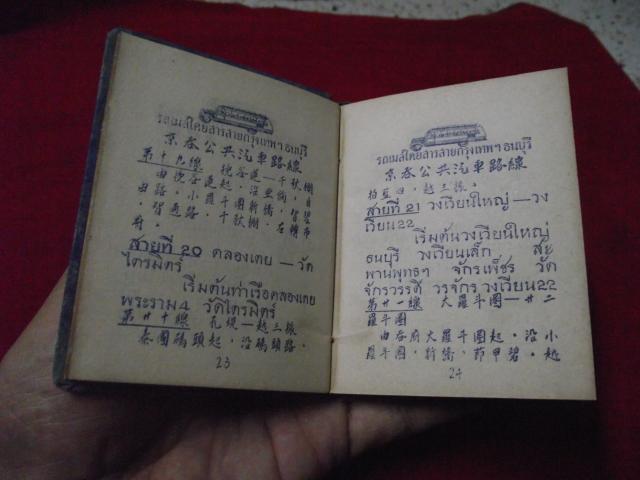 รถเมล์โดยสารสายกรุงเทพฯธนบุรี
京吞公共汽車路線
第十九線 挽谷蓮—千秋橋
由挽谷蓮起,沿
由路,小羅斗圈新衛,
路,千秋橋,右轉
สายที่ 20 คลองเตย—วัด
ไตรมิตร์
เริ่มต้นท่าเรือคลองเตย
พระราม4 วัดไตรมิตร์
第廿十線 孔堤—越三振
泰國碼頭起,沿碼頭路,
23
รถเมล์โดยสารสายกรุงเทพฯธนบุรี
京吞公共汽車路線
越三振。
สายที่ 21 วงเวียนใหญ่—วง
เวียน22
เริ่มต้นวงเวียนใหญ่
ธนบุรี วงเวียนเล็ก สะ
พานพุทธฯ จักรเพ็ชร วัด
จักรวรรดิ์ วรจักร วงเวียน22
第廿一線 大羅斗圈—廿二
羅斗圈
由吞府大羅斗圈起,沿小
羅斗圈,新衛,越
24